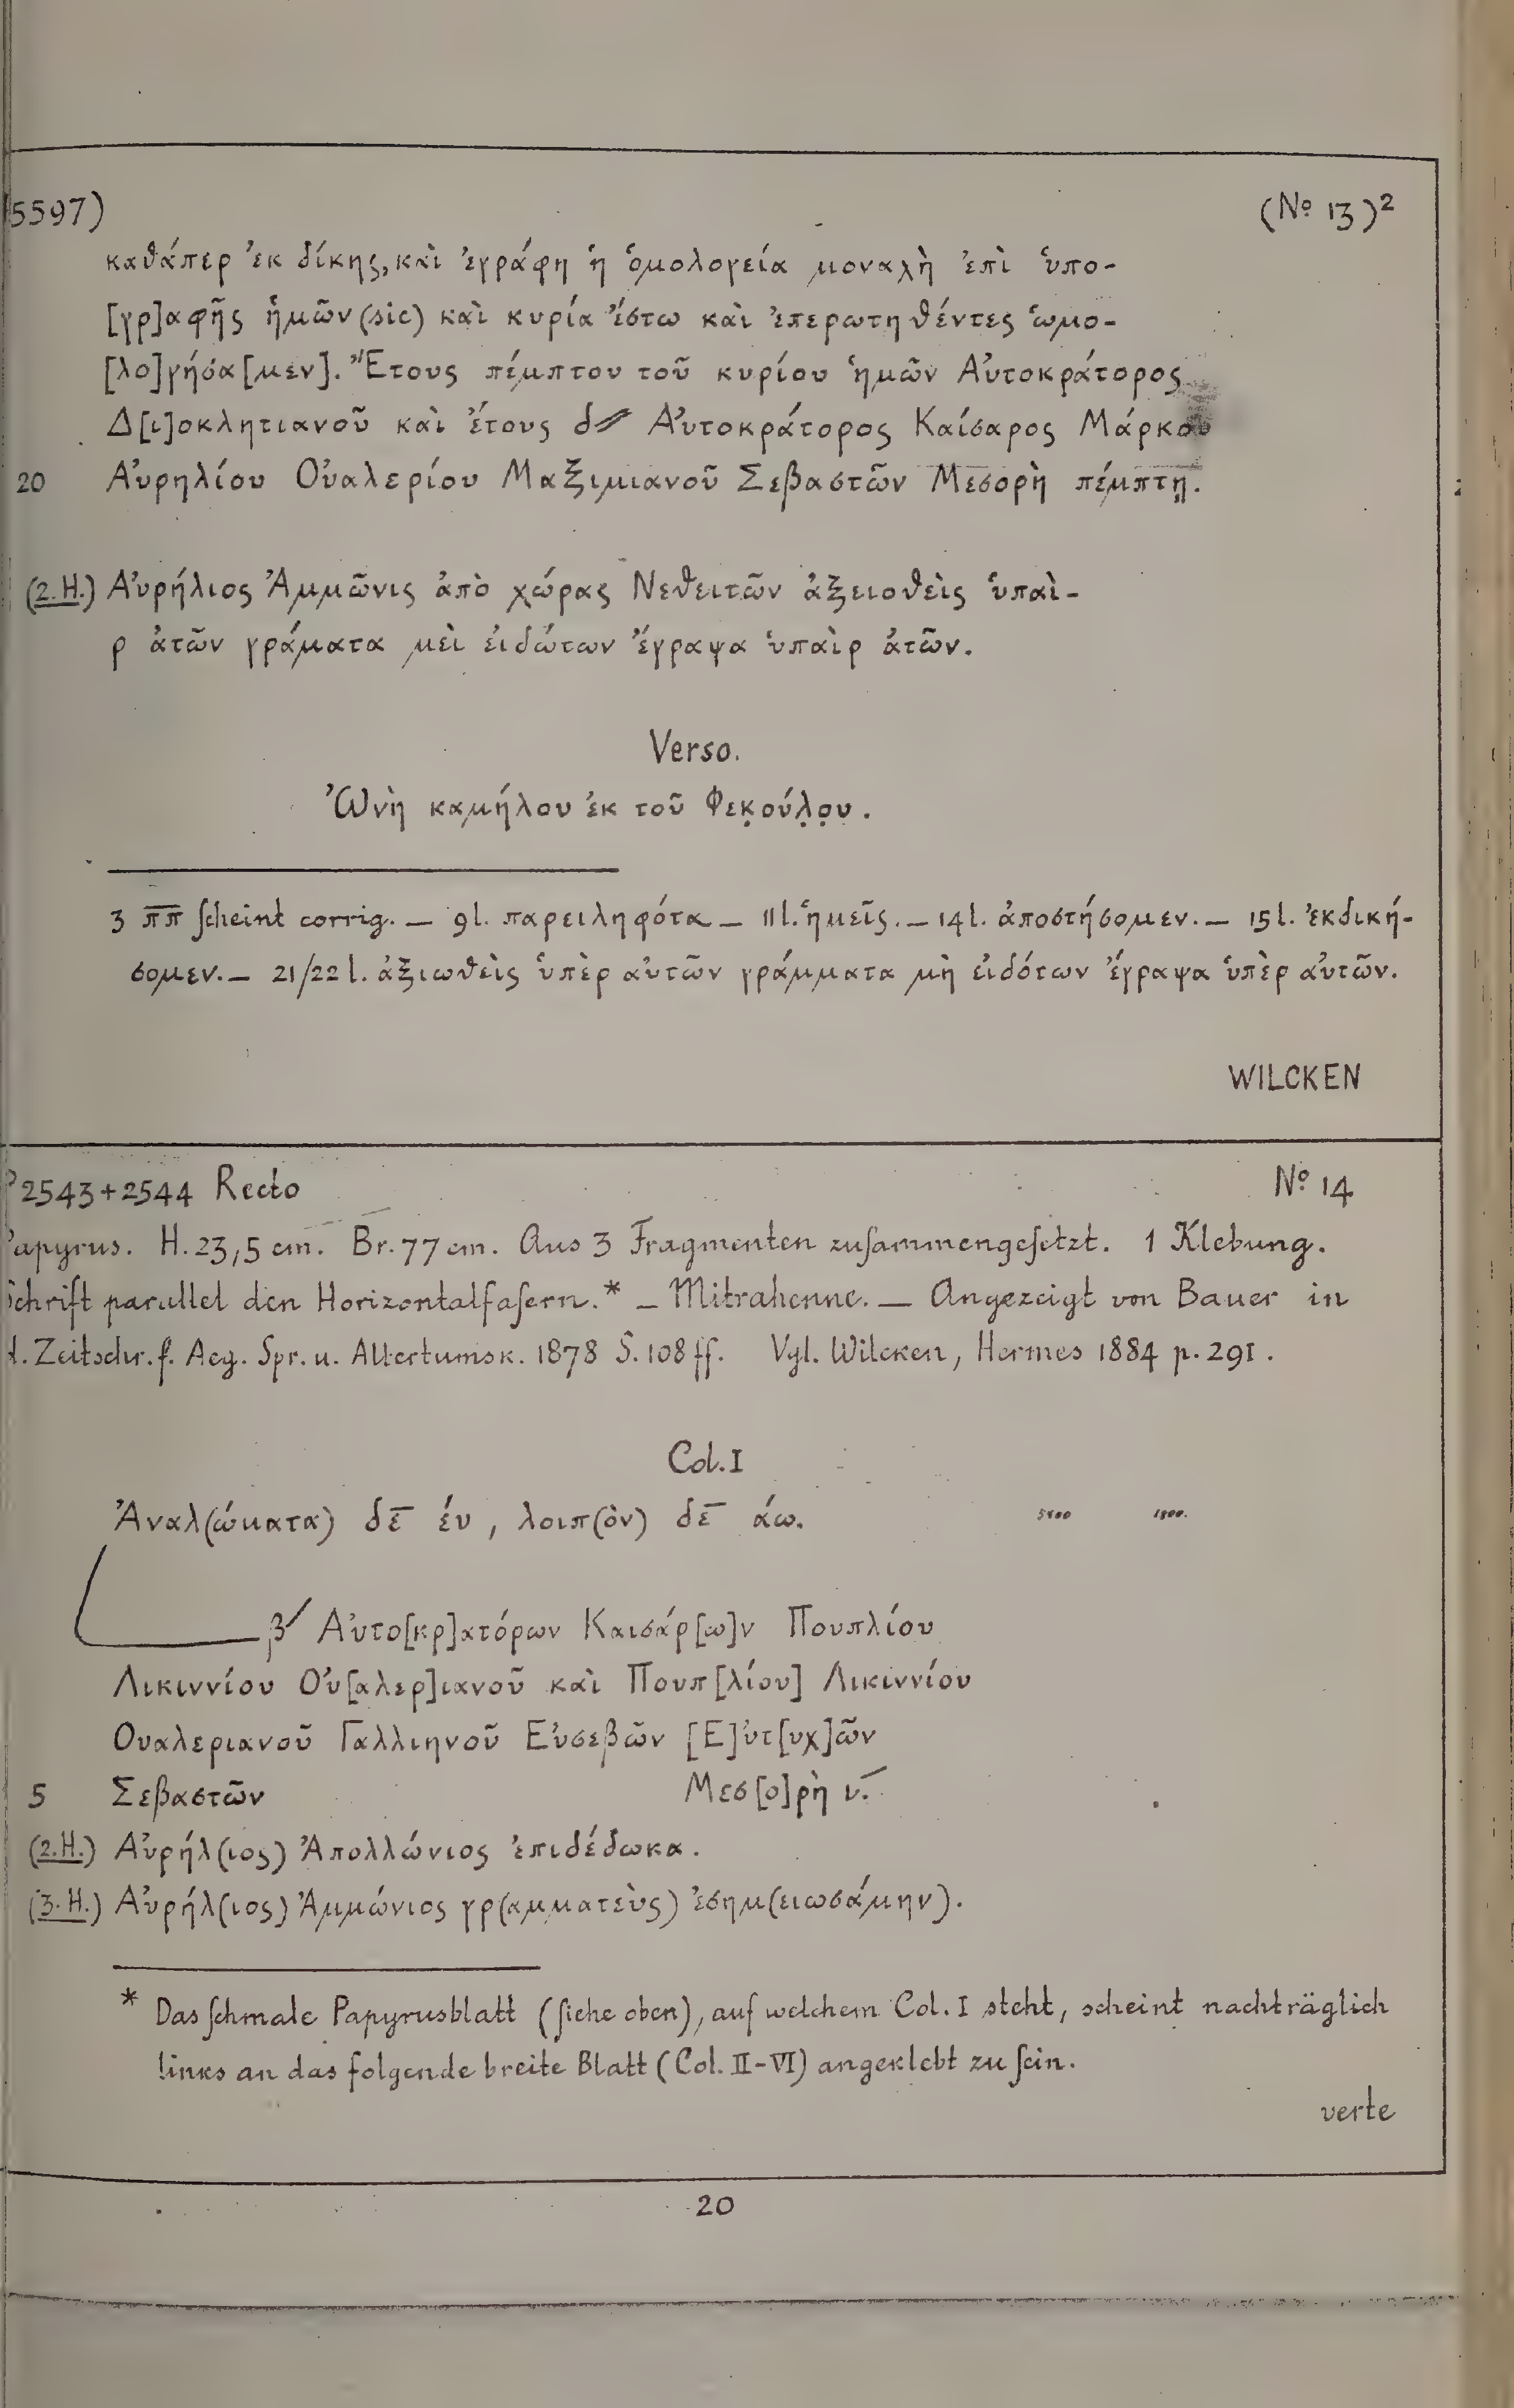 5597) (No 13)²
καθάπερ ἐκ δίκης, καὶ ἐγράφη ἡ ὁμολογεία μοναχὴ ἐπὶ ὑπο-
[γρ]αφῆς ἡμῶν (sic) καὶ κυρία ἔστω καὶ ἐπερωτηθέντες ὡμο-
[λο]γήσα[μεν]. Ἔτους πέμπτου τοῦ κυρίου ἡμῶν Αὐτοκράτορος
Δ[ι]οκλητιανοῦ καὶ ἔτους δ⸗ Αὐτοκράτορος Καίσαρος Μάρκου
20 Αὐρηλίου Οὐαλερίου Μαξιμιανοῦ Σεβαστῶν Μεσορὴ πέμπτῃ.
(2.H.) Αὐρήλιος Ἀμμῶνις ἀπὸ χώρας Νεθειτῶν ἀξειοθεὶς ὑπαὶ-
ρ ἀτῶν γράματα μεὶ εἰδώτων ἔγραψα ὑπαὶρ ἀτῶν.
Verso.
Ὠνὴ καμήλου ἐκ τοῦ Φεκ̣ούλ̣ο̣υ.
3 π̅π̅ scheint corrig. — 9 l. παρειληφότα — 11 l. ἡμεῖς. — 14 l. ἀποστήσομεν. — 15 l. ἐκδική-
σομεν. — 21/22 l. ἀξιωθεὶς ὑπὲρ αὐτῶν γράμματα μὴ εἰδότων ἔγραψα ὑπὲρ αὐτῶν.
WILCKEN
P 2543+2544 Recto No 14
Papyrus. H. 23,5 cm. Br. 77 cm. Aus 3 Fragmenten zusammengesetzt. 1 Klebung.
Schrift parallel den Horizontalfasern.* — Mitrahenne. — Angezeigt von Bauer in
d. Zeitschr. f. Aeg. Spr. u. Altertumsk. 1878 S. 108 ff. Vgl. Wilcken, Hermes 1884 p. 291.
Col. I
Ἀναλ(ώματα) δε̅ έυ, λοιπ(ὸν) δε̅ άω. 5400 1800.
β´ Αὐτο[κρ]ατόρων Καισάρ[ω]ν Πουπλίου
Λικιννίου Οὐ[αλερ]ιανοῦ καὶ Πουπ[λίου] Λικιννίου
Ουαλεριανοῦ Γαλλιηνοῦ Εὐσεβῶν [Ε]ὐτ[υχ]ῶν
5 Σεβαστῶν Μεσ[ο]ρὴ ν.̅
(2.H.) Αὐρήλ(ιος) Ἀπολλώνιος ἐπιδέδωκα.
(3.H.) Αὐρήλ(ιος) Ἀμμώνιος γρ(αμματεὺς) ἐσημ(ειωσάμην).
* Das schmale Papyrusblatt (siehe oben), auf welchem Col. I steht, scheint nachträglich
links an das folgende breite Blatt (Col. II-VI) angeklebt zu sein.
verte
20